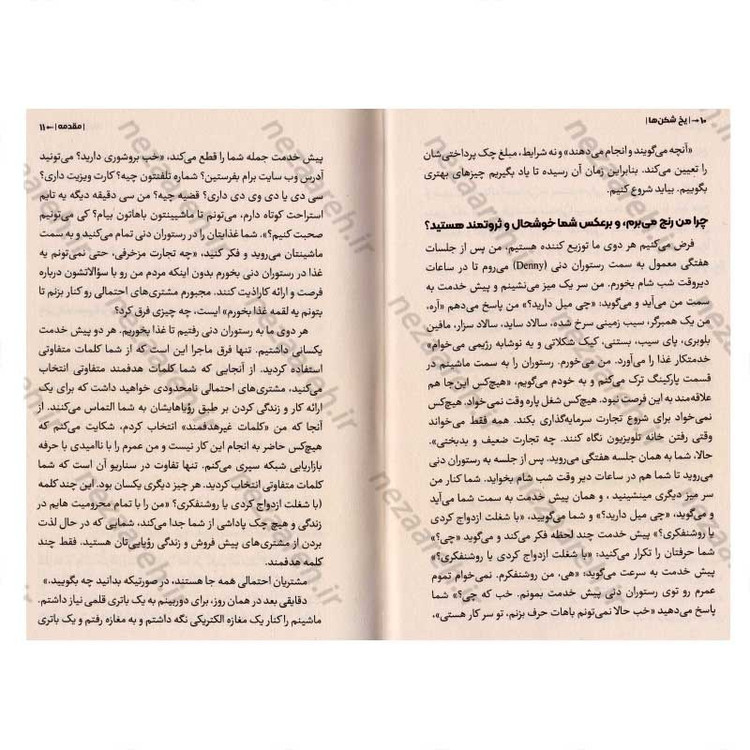 ۱۰ →| یخ شکن‌ها |
«آنچه می‌گویند و انجام می‌دهند» و نه شرایط، مبلغ چک پرداختی‌شان
را تعیین می‌کند. بنابراین زمان آن رسیده تا یاد بگیریم چیزهای بهتری
بگوییم. بیاید شروع کنیم.
چرا من رنج می‌برم، و برعکس شما خوشحال و ثروتمند هستید؟
فرض می‌کنیم هر دوی ما توزیع کننده هستیم. من پس از جلسات
هفتگی معمول به سمت رستوران دنی (Denny) می‌روم تا در ساعات
دیروقت شب شام بخورم. من سر یک میز می‌نشینم و پیش خدمت به
سمت من می‌آید و می‌گوید: «چی میل دارید؟» من پاسخ می‌دهم «آره،
من یک همبرگر، سیب زمینی سرخ شده، سالاد ساید، سالاد سزار، مافین
بلوبری، پای سیب، بستنی، کیک شکلاتی و یه نوشابه رژیمی می‌خوام»
خدمتکار غذا را می‌آورد. من می‌خورم. رستوران را به سمت ماشینم در
قسمت پارکینگ ترک می‌کنم و به خودم می‌گویم، «هیچ‌کس این‌جا هم
علاقه‌مند به این فرصت نبود. هیچ‌کس شغل پاره وقت نمی‌خواد. هیچ‌کس
نمی‌خواد برای شروع تجارت سرمایه‌گذاری بکند. همه فقط می‌خواند
وقتی رفتن خانه تلویزیون نگاه کنند. چه تجارت ضعیف و بدبختی».
حالا، شما به همان جلسه هفتگی می‌روید. پس از جلسه به رستوران دنی
می‌روید تا شما هم در ساعات دیر وقت شب شام بخواید. شما کنار من
سر میز دیگری مینشینید ، و همان پیش خدمت به سمت شما می‌آید
و می‌گوید، «چی میل دارید؟» و شما می‌گویید، «با شغلت ازدواج کردی
یا روشنفکری؟» پیش خدمت چند لحظه فکر می‌کند و می‌گوید «چی؟»
شما حرفتان را تکرار می‌کنید: «با شغلت ازدواج کردی یا روشنفکری؟»
پیش خدمت به سرعت می‌گوید: «هی، من روشنفکرم. نمی‌خوام تموم
عمرم رو توی رستوران دنی پیش خدمت بمونم. خب که چی؟» شما
پاسخ می‌دهید «خب حالا نمی‌تونم باهات حرف بزنم، تو سر کار هستی»،
| مقدمه |← ۱۱
پیش خدمت جمله شما را قطع می‌کند، «خب بروشوری دارید؟ می‌تونید
آدرس وب سایت برام بفرستین؟ شماره تلفنتون چیه؟ کارت ویزیت داری؟
سی دی یا دی وی دی داری؟ قضیه چیه؟ من سی دقیقه دیگه یه تایم
استراحت کوتاه دارم، می‌تونم تا ماشینتون باهاتون بیام؟ کی می‌تونیم
صحبت کنیم؟». شما غذایتان را در رستوران دنی تمام می‌کنید و به سمت
ماشینتان می‌روید و فکر کنید، «چه تجارت مزخرفی، حتی نمی‌تونم یه
غذا در رستوران دنی بخورم بدون اینکه مردم من رو با سؤالاتشون درباره
فرصت و ارائه کارااذیت کنند. مجبورم مشتری‌های احتمالی رو کنار بزنم تا
بتونم یه لقمه غذا بخورم» ایست، چه چیزی فرق کرد؟
هر دوی ما به رستوران دنی رفتیم تا غذا بخوریم. هر دو پیش خدمت
یکسانی داشتیم. تنها فرق ماجرا این است که از شما کلمات متفاوتی
استفاده کردید. از آنجایی که شما کلمات هدفمند متفاوتی انتخاب
می‌کنید، مشتری‌های احتمالی نامحدودی خواهید داشت که برای یک
ارائه کار و زندگی کردن بر طبق رؤیاهایشان به شما التماس می‌کنند. از
آنجا که من «کلمات غیرهدفمند» انتخاب کردم، شکایت می‌کنم که
هیچ‌کس حاضر به انجام این کار نیست و من عمرم را با ناامیدی با حرفه
بازاریابی شبکه سپری می‌کنم. تنها تفاوت در سناریو آن است که شما
کلمات متفاوتی انتخاب کردید. هر چیز دیگری یکسان بود. این چند کلمه
(با شغلت ازدواج کردی یا روشنفکری؟ «من را با تمام محرومیت هایم در
زندگی و هیچ چک پاداشی از شما جدا می‌کند، شمایی که در حال لذت
بردن از مشتری‌های پیش فروش و زندگی رؤیایی‌تان هستید. فقط چند
کلمه هدفمند.
مشتریان احتمالی همه جا هستند، در صورتیکه بدانید چه بگویید.»
دقایقی بعد در همان روز، برای دوربینم به یک باتری قلمی نیاز داشتم.
ماشینم را کنار یک مغازه الکتریکی نگه داشتم و به مغازه رفتم و یک باتری
nezaareh.ir